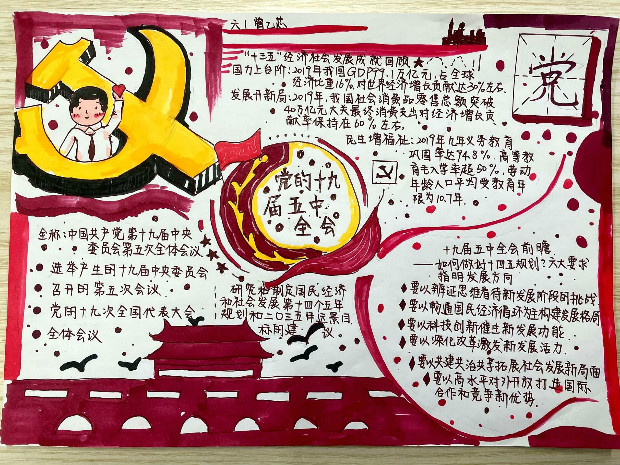 六1 曾乙芯
"十三五"经济社会发展成就回顾
国力上台阶:2019年我国GDP99.1万亿元,占全球
经济比重16%,对世界经济增长贡献达30%左右.
发展开新局:2019年,我国社会消费品零售总额突破
40万亿元大关最终消费支出对经济增长贡
献率保持在60%左右.
民生增福祉:2019年九年义务教育
巩固率达94.8%.高等教
育毛入学率超50%,劳动
年龄人口平均受教育年
限为10.7年.
党
党的十九
届五中
全会
全称:中国共产党第十九届中央
委员会第五次全体会议
选举产生的十九届中央委员会
召开的第五次会议
党的十九次全国代表大会
全体会议
研究和制定国民经济
和社会发展第十四个五年
规划和二〇三五年远景目
标的建议
十九届五中全会前瞻
——如何做好十四五规划?六大要求
指明发展方向
要以辨证思维看待新发展阶段的挑战
要以畅通国民经济循环为主构建发展格局
要以科技创新催生新发展功能
要以深化改革激发新发展活力.
要以共建共治共享拓展社会发展新局面
要以高水平对外开放打造国际
合作和竞争新优势.